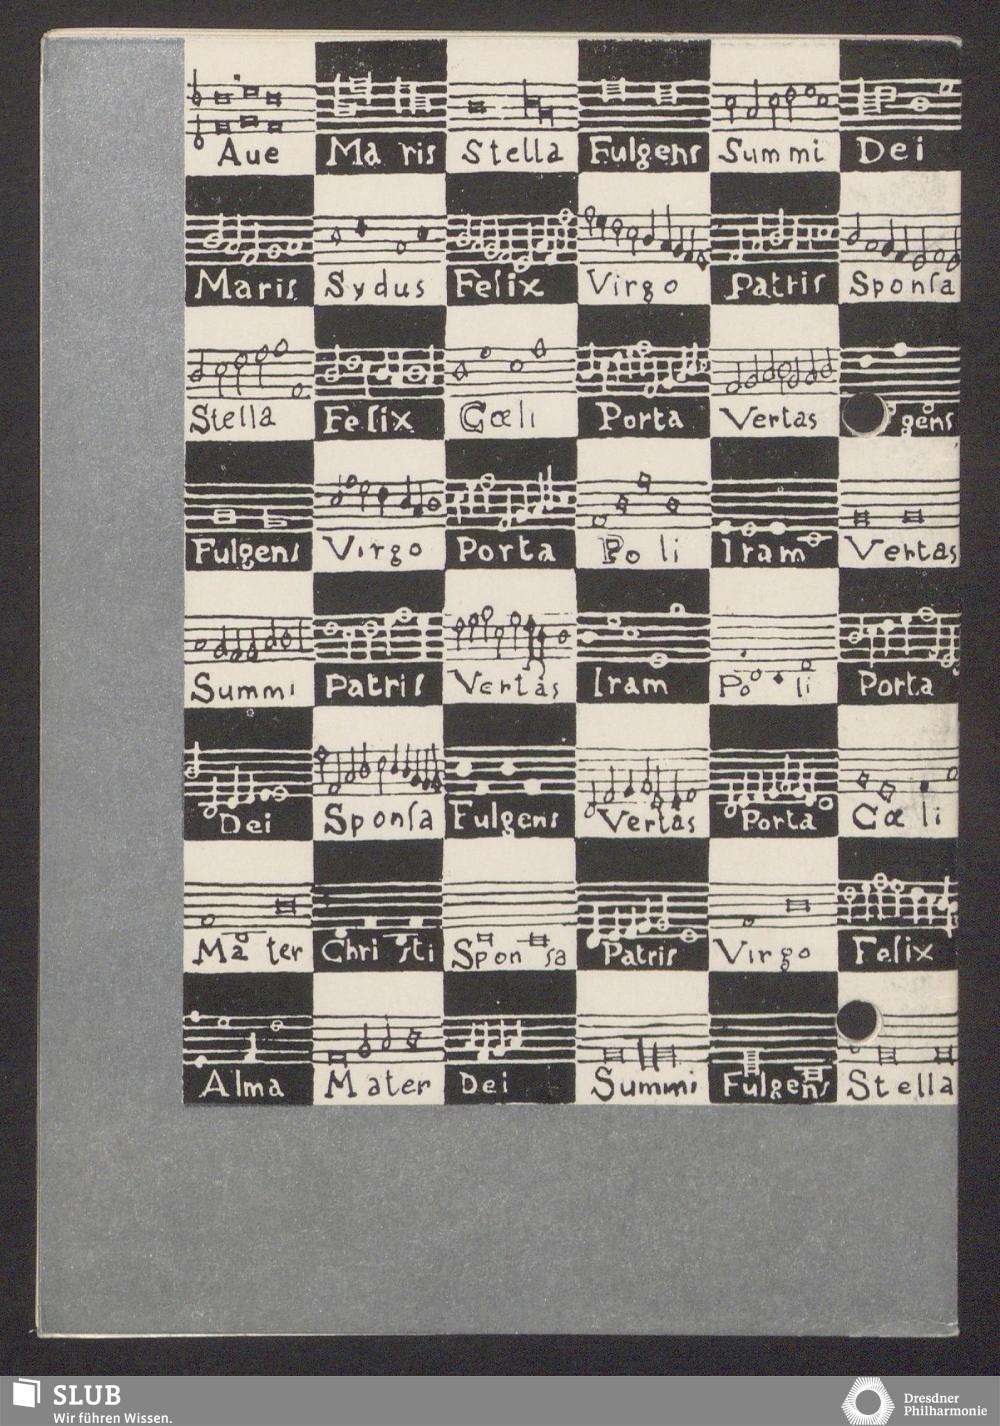 Aue Ma ris Stella Fulgens Summi Dei
Maris Sydus Felix Virgo Patris Sponſa
Stella Felix Cœli Porta Vertas gens
Fulgens Virgo Porta Po li Iram Vertas
Summi Patris Vertas Iram Po li Porta
Dei Sponſa Fulgens Vertas Porta Cœ li
Ma ter Chri sti Spon sa Patris Virgo Felix
Alma Mater Dei Summi Fulgens Stella
SLUB
Wir führen Wissen.
Dresdner
Philharmonie